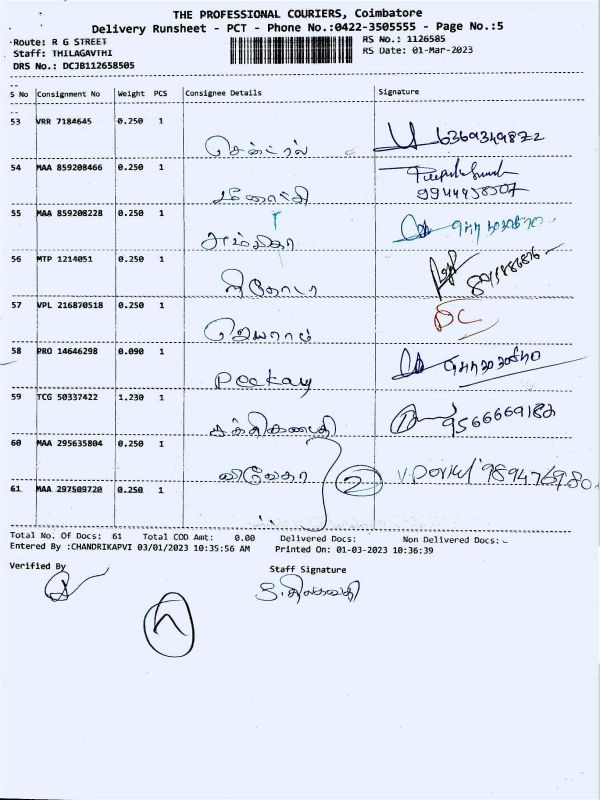 THE PROFESSIONAL COURIERS, Coimbatore
Delivery Runsheet - PCT - Phone No.:0422-3505555 - Page No.:5
Route: R G STREET
RS No.: 1126585
Staff: THILAGAVTHI
RS Date: 01-Mar-2023
DRS No.: DCJB112658505
S No Consignment No Weight PCS Consignee Details Signature
53 VRR 7184645 0.250 1
சென்ட்ரல் 6369349872
54 MAA 859208466 0.250 1
மீனாட்சி
55 MAA 859208228 0.250 1
அம்பிகா
56 MTP 1214051 0.250 1
57 VPL 216870518 0.250 1
ஜெயராம் DC
58 PRO 14646298 0.090 1
Peekay
59 TCG 50337422 1.230 1
சக்திகணபதி 9566669182
60 MAA 295635804 0.250 1
விவேகா 2
61 MAA 297509720 0.250 1
" "
Total No. Of Docs: 61 Total COD Amt: 0.00 Delivered Docs: Non Delivered Docs:-
Entered By :CHANDRIKAPVI 03/01/2023 10:35:56 AM Printed On: 01-03-2023 10:36:39
Verified By
Staff Signature